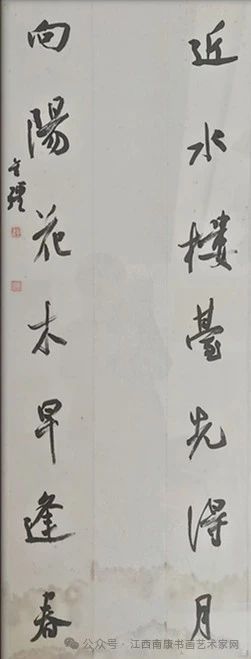 近水楼臺先得月
向陽花木早逢春
公众号·江西南康书画艺术家网